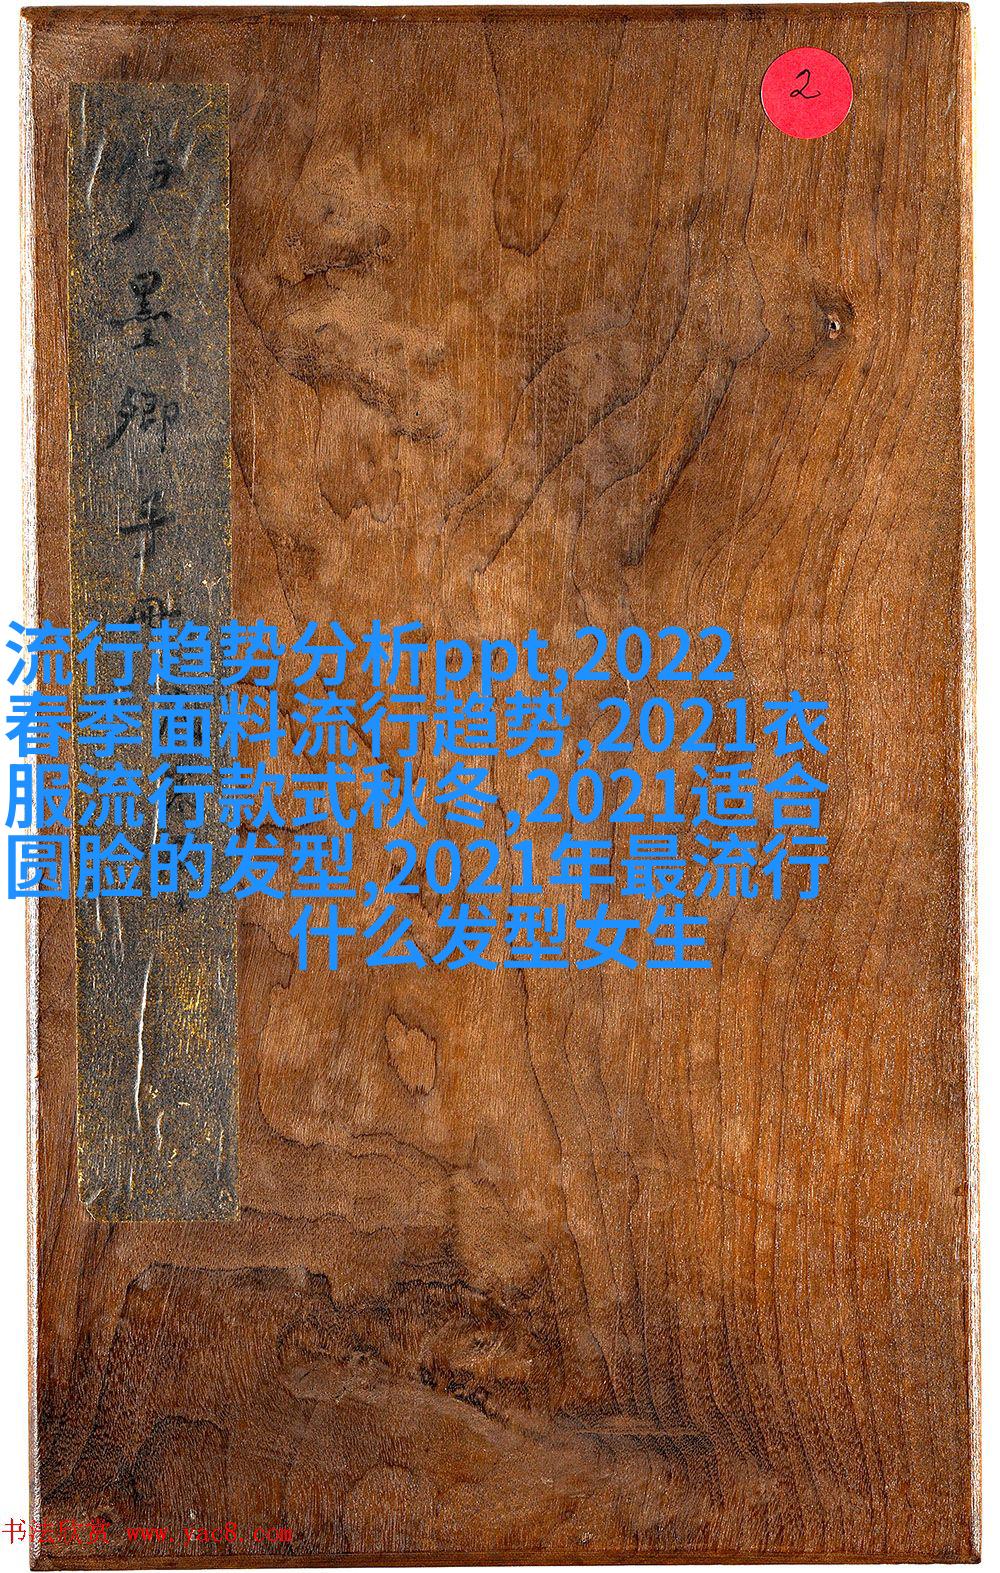 2
墨卿手冊
流行趋势分析ppt,2022
春季面料流行趋势,2021衣
服流行款式秋冬,2021适合
圆脸的发型,2021年最流行
什么发型女生
书法欣赏 www.yac8.com